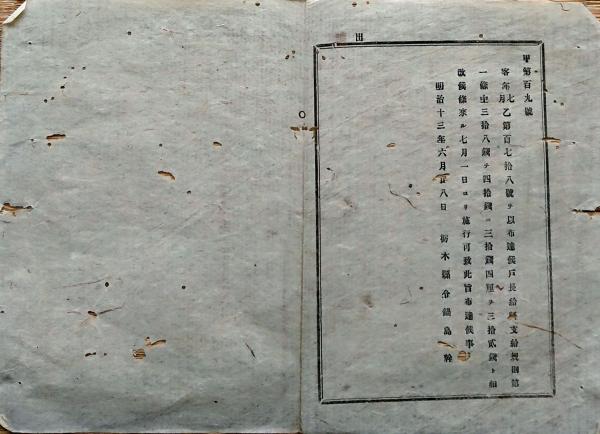 甲第百九號
客年七月乙第百七拾八號ヲ以布達候戸長給料支給規則第
一條中三拾八錢ヲ四拾錢ニ三拾錢四厘ヲ三拾貳錢ト相
改候條來ル七月一日ヨリ施行可致此旨布達候事
明治十三年六月廿八日 栃木縣令鍋島幹